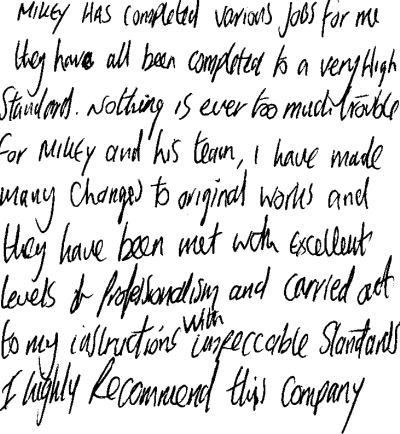 Mikey Has completed various jobs for me
they have all been completed to a very High
Standard. Nothing is ever too much trouble
for Mikey and his team, I have made
many changes to original works and
they have been met with Excellent
levels of Professionalism and carried out
to my instructions with impeccable Standards
I highly Recommend this company